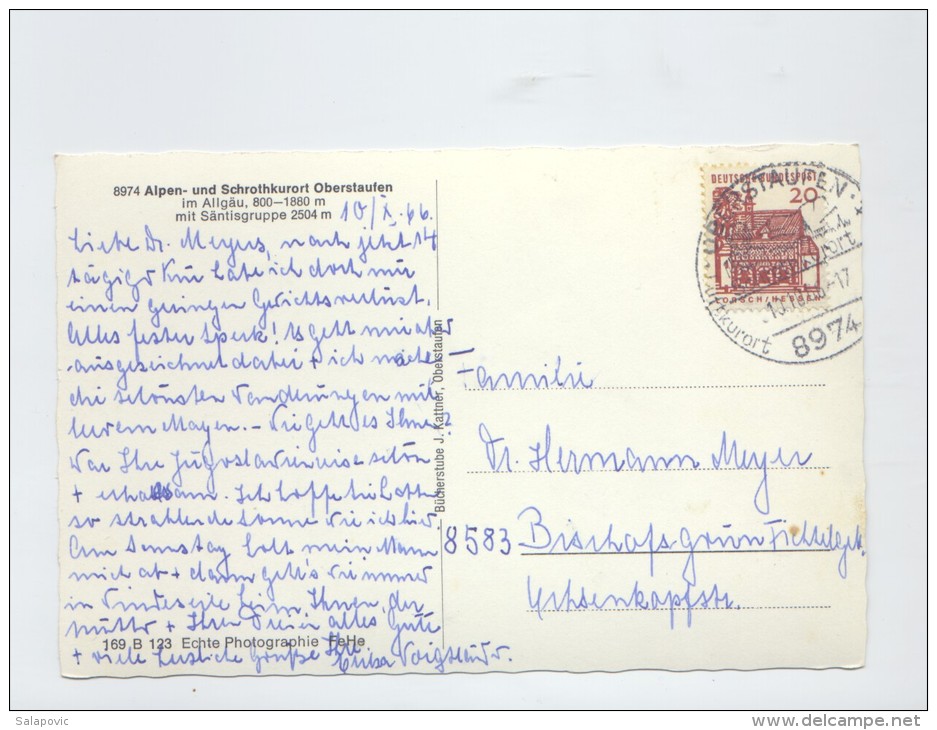 8974 Alpen- und Schrothkurort Oberstaufen
im Allgäu, 800—1880 m
mit Säntisgruppe 2504 m
10/X. 66.
Liebe Dr. Meyers, nach jetzt 14
tägiger Kur habe ich doch nur
einen geringen Gewichtsverlust.
Alles fester Speck! Es geht mir aber
ausgezeichnet dabei + ich mache
die schönsten Wanderungen mit
leerem Magen. – Wie geht es Ihnen?
War Ihre Jugoslavienreise schön
+ erholsam. Ich hoffe Sie hatten
so strahlende Sonne wie ich hier.
Am Samstag holt mein Mann
mich ab + dann geht's wie immer
in Windeseile heim. Ihnen, der
Mutter + Ihren Dreien alles Gute
+ viele herzliche Grüße Ihre
Voigtländer.
169 B 123 Echte Photographie FeHe
Bücherstube J. Kattner, Oberstaufen
DEUTSCHE BUNDESPOST
20
LORSCH/HESSEN
OBERSTAUFEN
8974
Familie
Dr. Hermann Meyer
8583 Bischofsgrün Fichtelgeb.
Ochsenkopfstr.
Salapovic
delcampe.net